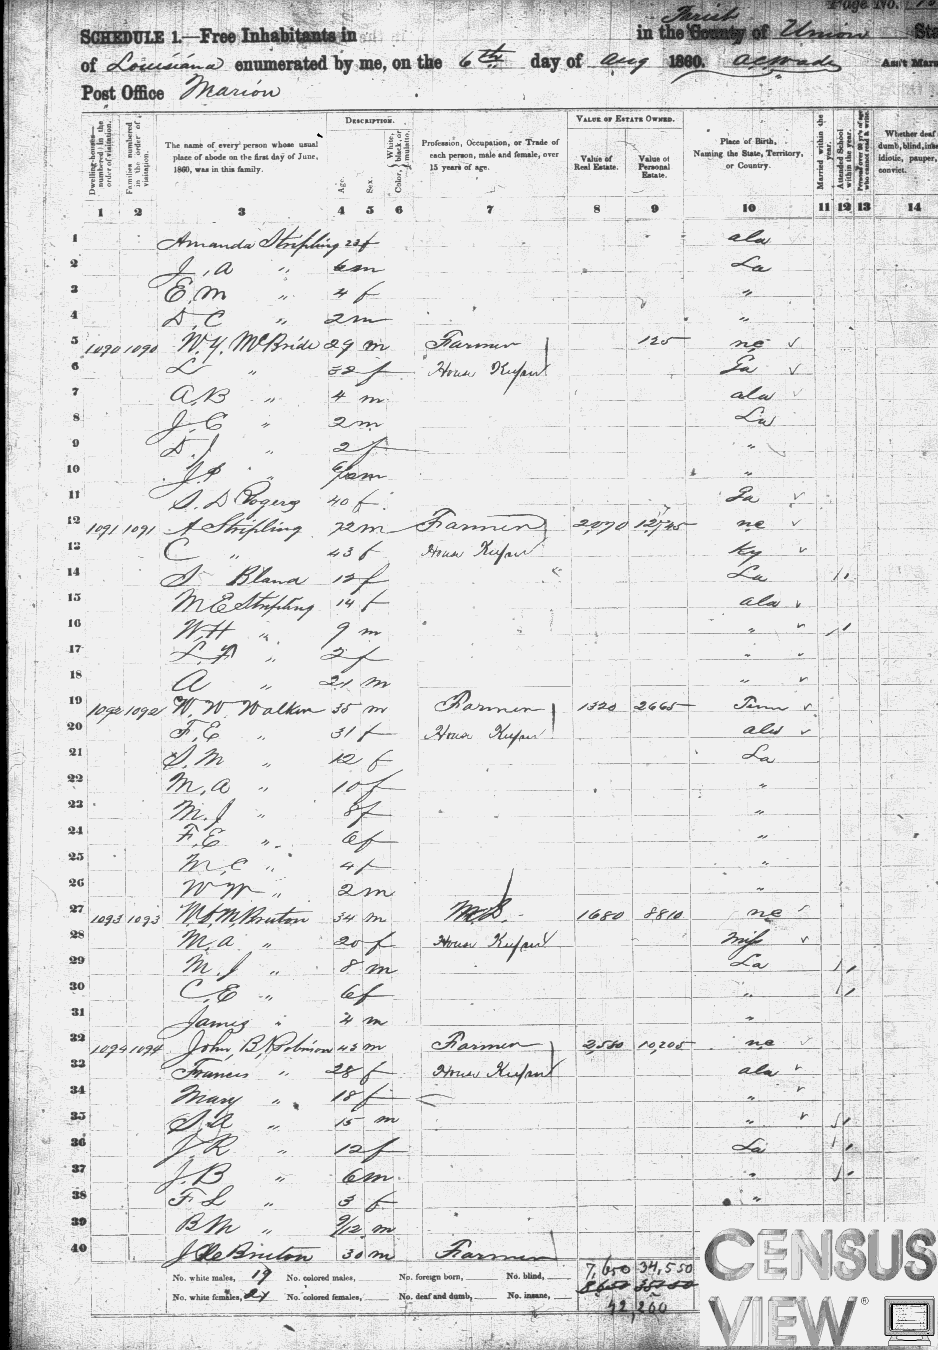 Page No.
SCHEDULE 1.—Free Inhabitants in in the County of Parish Union Sta
of Louisiana enumerated by me, on the 6th day of Aug 1860. Ass't Mars
Post Office Marion
DESCRIPTION. VALUE OF ESTATE OWNED.
Dwelling-houses—numbered in the order of visitation. Families numbered in the order of visitation. The name of every person whose usual place of abode on the first day of June, 1860, was in this family. Age. Sex. Color, White, black, or mulatto. Profession, Occupation, or Trade of each person, male and female, over 15 years of age. Value of Real Estate. Value of Personal Estate. Place of Birth, Naming the State, Territory, or Country. Married within the year. Attended School within the year. Persons over 20 y'rs of age who cannot read & write. Whether deaf dumb, blind, idiotic, pauper, convict.
1 2 3 4 5 6 7 8 9 10 11 12 13 14
1 Amanda Stripling 23 f ala
2 J. A " 6 m La
3 E. M " 4 f "
4 D. C " 2 m "
5 1090 1090 W. Y. McBride 29 m Farmer 125 nc
6 L " 32 f House Keeper Ga
7 A. B " 4 m ala
8 J. C " 2 m La
9 D. J " 2 f "
10 J. P " m "
11 S. D Rogers 40 f Ga
12 1091 1091 A Stripling 72 m Farmer 2070 nc
13 C " 43 f House Keeper Ky
14 S Bland 12 f La
15 M E Stripling 14 f ala
16 W. H " 9 m "
17 " 2 f "
18 A " 21 m "
19 1092 1092 W. W Walker 35 m Farmer 1320 2665 Tenn
20 F. E " 31 f House Keeper ala
21 S. M " 12 f La
22 M. A " 10 f "
23 M. J " 8 f "
24 F. E " 6 f "
25 M. C " 4 f "
26 W W " 2 m "
27 1093 1093 Bruton 34 m M.D. 1680 8810 nc
28 M. A " 20 f House Keeper Miss
29 M. J " 8 m La
30 C. E " 6 f "
31 James " 4 m "
32 1094 1094 John, B. Robinson 43 m Farmer 2,550 10,205 nc
33 Francis " 28 f House Keeper ala
34 Mary " 18 f "
35 S. A " 15 m "
36 J. R " 12 f La
37 J. B " 6 m "
38 F L " 3 f "
39 B M " 9/12 m
40 Bruton 30 m Farmer
No. white males, 19 No. colored males, No. foreign born, No. blind, 7,650 34,550
No. white females, 21 No. colored females, No. deaf and dumb, No. insane,
42,260
CENSUS
VIEW®